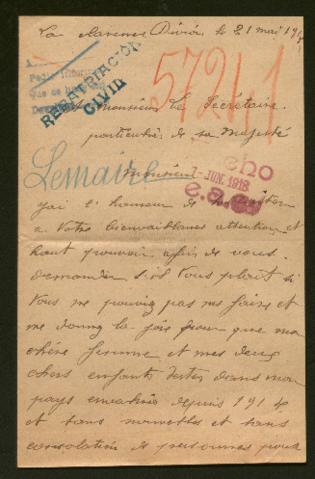 La Clarence Divion le 21 mai 191
A
Pedir infor
REPATRIACION
CIVIL
5724,1
monsieur Le Secrétaire
particulier de sa Majesté
Lemaire
Monsieur
hecho
1 - JUN. 1918
e.a.
jai l'honneur de
a votre bienveillance attention et
haut pouvoir afin de vous
demander s'il vous plait si
Vous ne pouviez pas me faire et
me donner la joie pour que ma
chére femme et mes deux
chers enfants restés dans mon
pays envahie depuis 1914
et sans nouvelles et sans
consolation de personnes pour